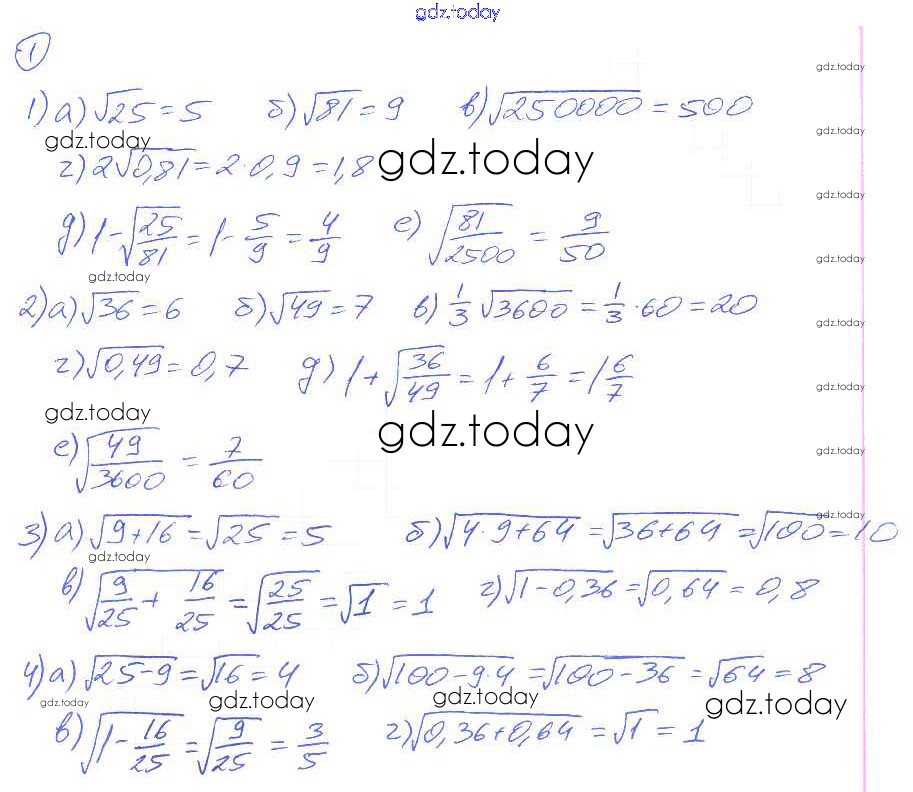 gdz.today
1
gdz.today
1) а) √25 = 5 б) √81 = 9 в) √250000 = 500
gdz.today
gdz.today
г) 2√0,81 = 2·0,9 = 1,8 gdz.today
gdz.today
д) 1 - √25/81 = 1 - 5/9 = 4/9 е) √81/2500 = 9/50
gdz.today
gdz.today
2) а) √36 = 6 б) √49 = 7 в) 1/3 √3600 = 1/3 · 60 = 20
gdz.today
г) √0,49 = 0,7 д) 1 + √36/49 = 1 + 6/7 = 1 6/7
gdz.today
gdz.today
gdz.today
е) √49/3600 = 7/60
gdz.today
gdz.today
3) а) √9+16 = √25 = 5 б) √4·9+64 = √36+64 = √100 = 10
gdz.today
в) √9/25 + 16/25 = √25/25 = √1 = 1 г) √1-0,36 = √0,64 = 0,8
4) а) √25-9 = √16 = 4 б) √100-9·4 = √100-36 = √64 = 8
gdz.today gdz.today gdz.today gdz.today
в) √1 - 16/25 = √9/25 = 3/5 г) √0,36+0,64 = √1 = 1